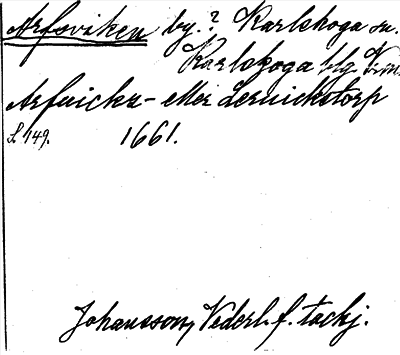 Arfsviken by.? Karlskoga sn.
Karlskoga blg Vrml.
Arfwickz- eller Lerwickstorp
S. 149. 1661.
Johansson, Vederl. f. tackj.